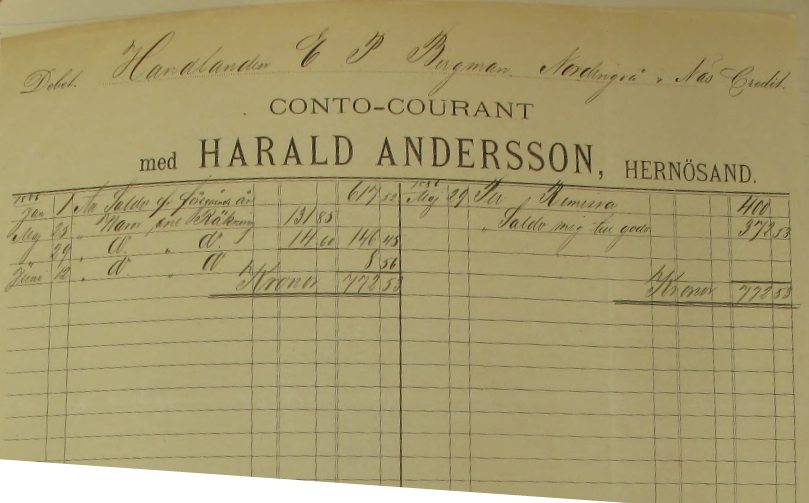 Debet. Handlanden E P Bergman, Nordingrå, Näs Credit.
CONTO-COURANT
med HARALD ANDERSSON, HERNÖSAND.
Jan 1 An Saldo fr föregående år 617 52
Maj 25 " Varor enl Räkning 131 85
" 29 " do " do 14 60 146 45
Juni 12 " do " do 8 56
Kronor 772 53
Maj 29 Per Remissa 400
" Saldo mig till godo 372 53
Kronor 772 53